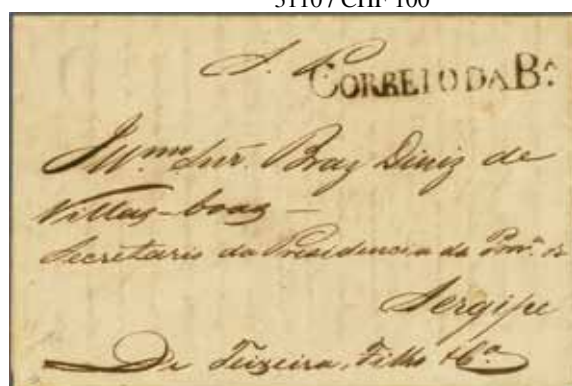 3110 / CHF 100
S. P.
CORREIO DA Bᴬ.
Illᵐᵒ Snr. Braz Diniz de
Villas-boas —
Secretario da Presidencia da Provᵃ. de
Sergipe
De Teixeira, Filho &Cᵃ